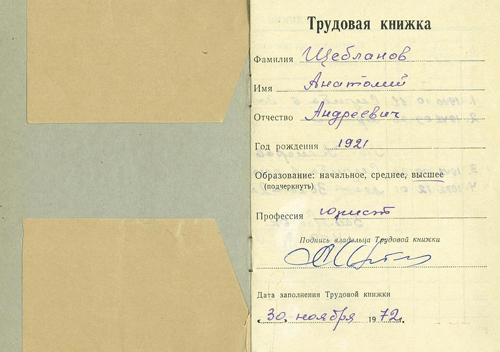 Трудовая книжка
Фамилия Щебланов
Имя Анатолий
Отчество Андреевич
Год рождения 1921
Образование: начальное, среднее, высшее
(подчеркнуть)
Профессия юрист
Подпись владельца Трудовой книжки
Дата заполнения Трудовой книжки
30 ноября 1972 г.